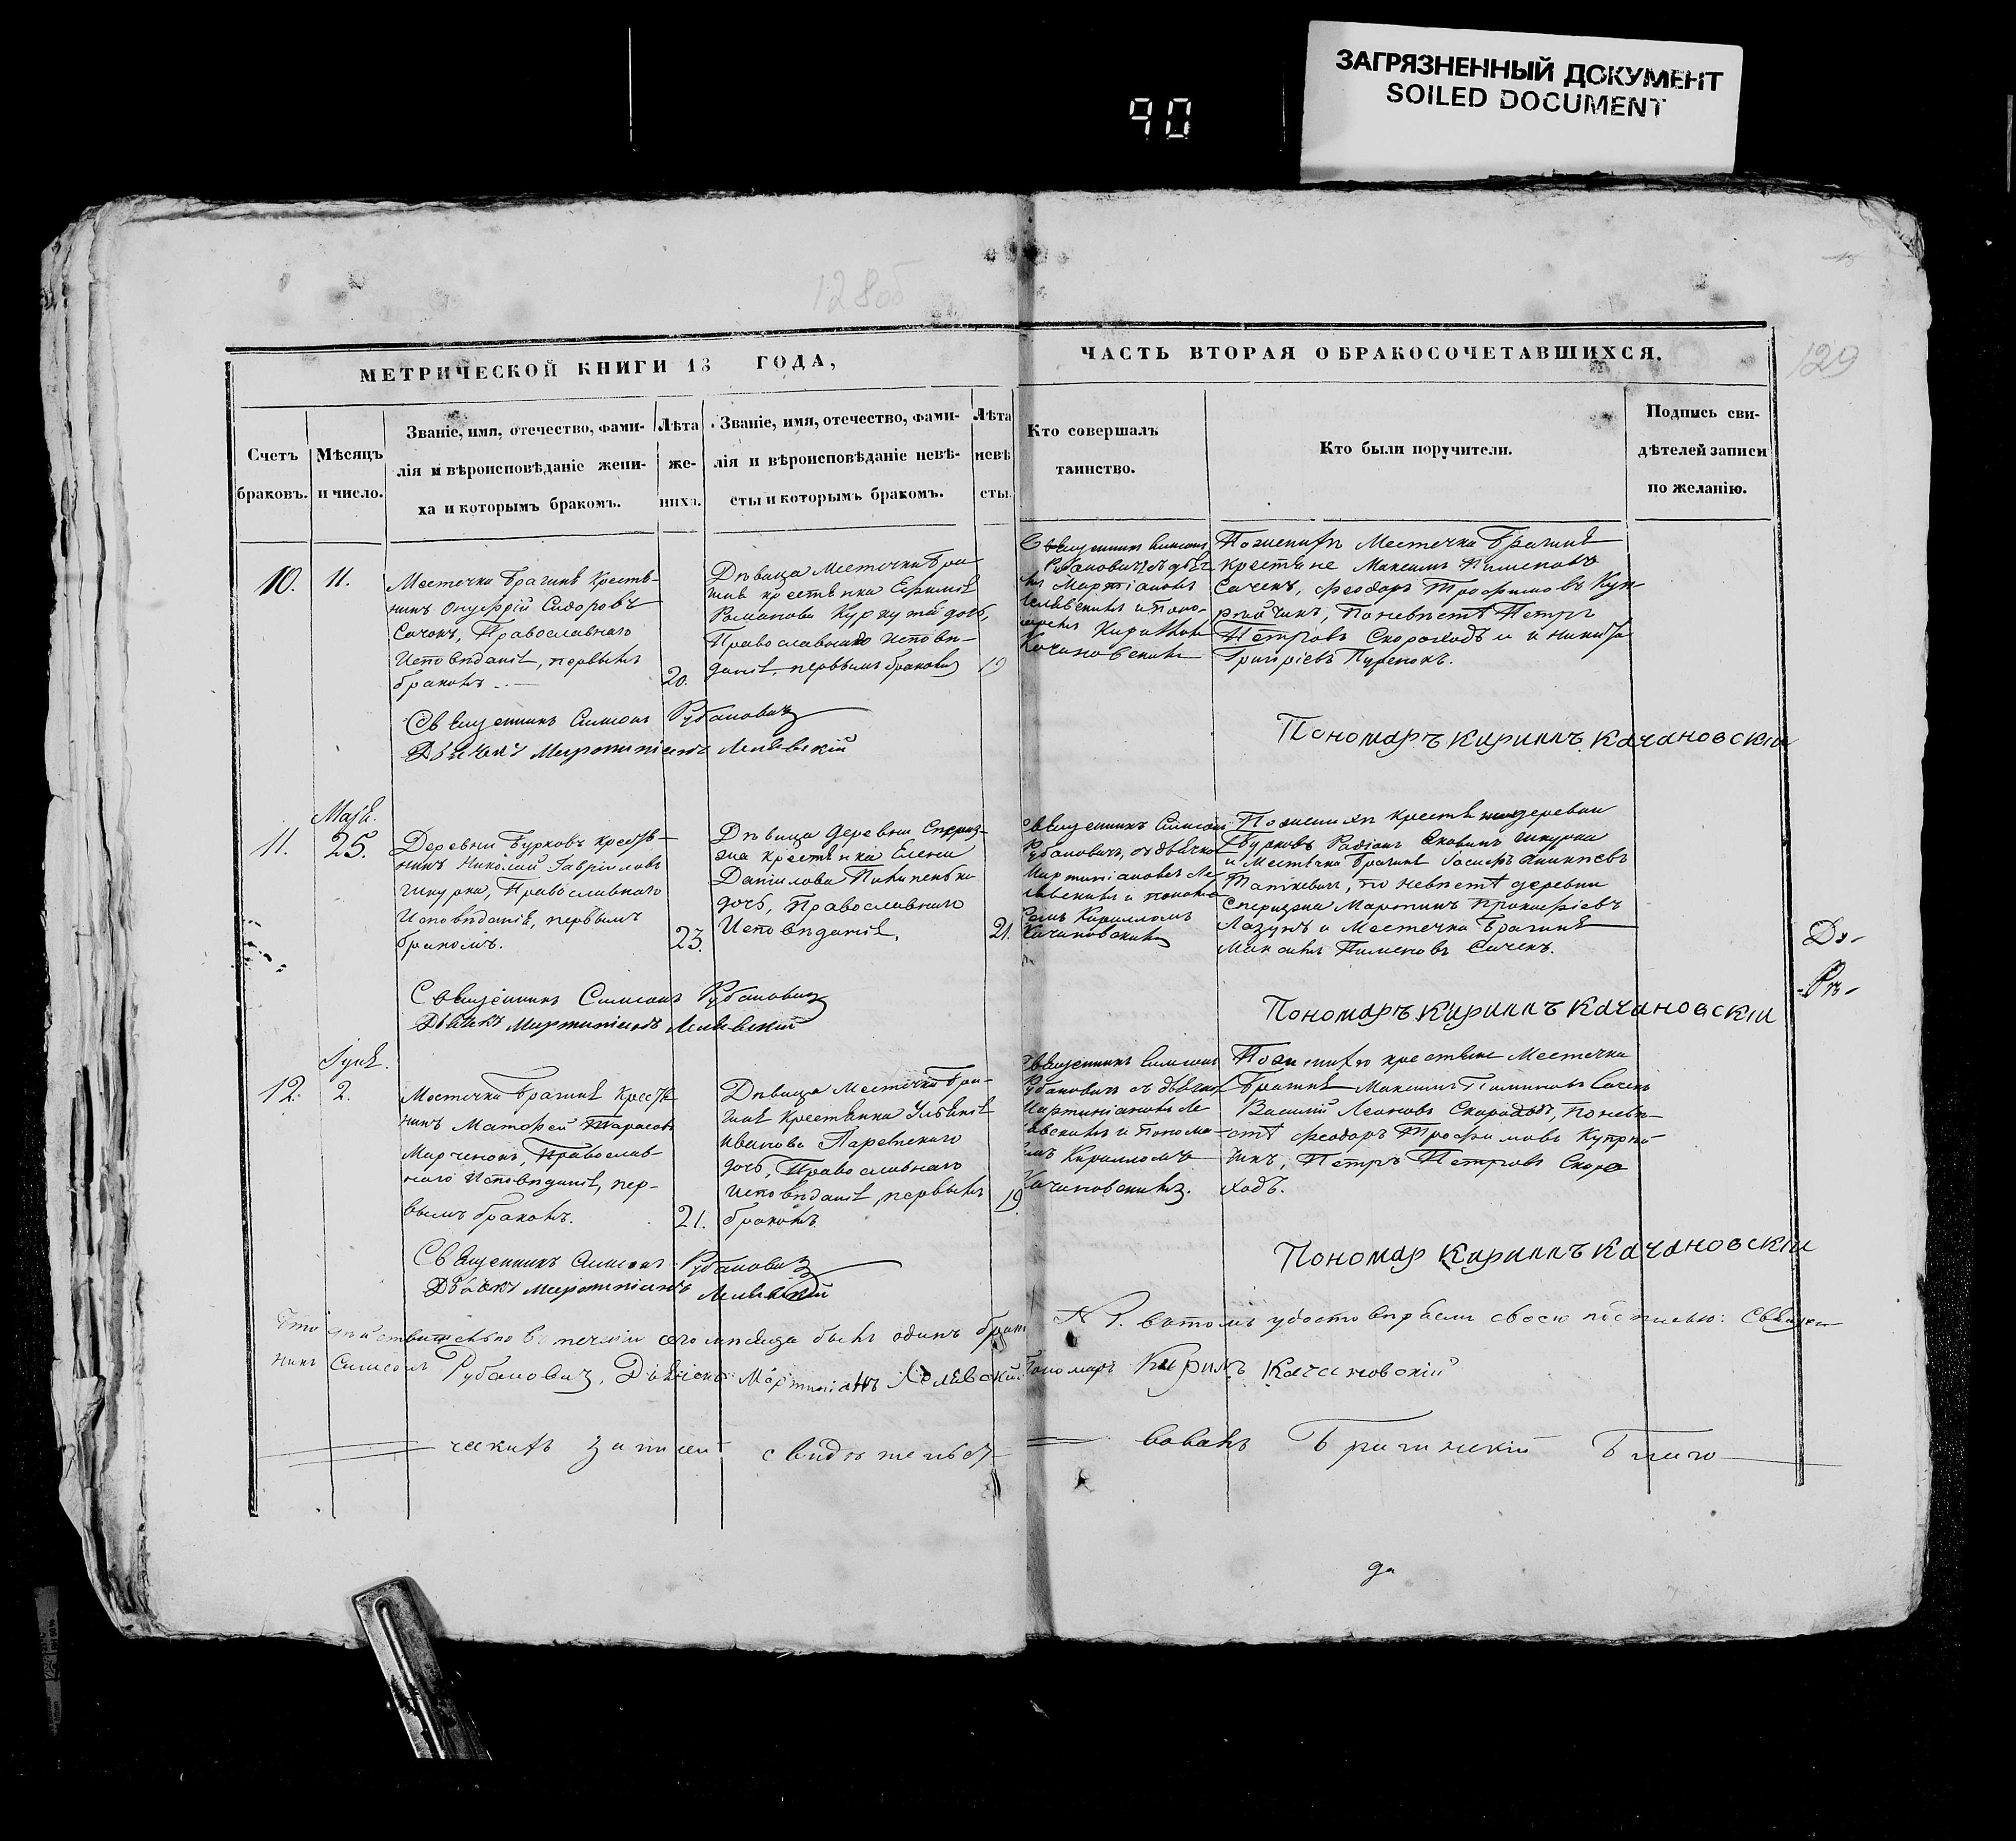 ЗАГРЯЗНЕННЫЙ ДОКУМЕНТ
SOILED DOCUMENT
90
128об
129
МЕТРИЧЕСКОЙ КНИГИ 18 ГОДА,
ЧАСТЬ ВТОРАЯ О БРАКОСОЧЕТАВШИХСЯ.
Счетъ
браковъ.
Мѣсяцъ
и число.
Званіе, имя, отечество, фами-
лія и вѣроисповѣданіе жени-
ха и которымъ бракомъ.
Лѣта
же-
ниха.
Званіе, имя, отечество, фами-
лія и вѣроисповѣданіе невѣ-
сты и которымъ бракомъ.
Лѣта
невѣ
сты.
Кто совершалъ
таинство.
Кто были поручители.
Подпись сви-
дѣтелей записи
по желанію.
10.
11.
Местечка Брагиня Кресть-
нинъ Онуфрій Сидоровъ
Сачокъ, Православнаго
Исповѣданія, первымъ
бракомъ
20.
Дѣвица Местечка Бра
гиня крестьянка Ефимія
Романова дочь,
Православнаго исповѣ-
данія, первымъ бракомъ
19
Священникъ Симеонъ
Рубановичъ съ дьяч
Мартиніаномъ
Лелявскимъ и Поно-
Кирилломъ
Качановскимъ
По женихѣ Местечка Брагиня
крестьяне Максимъ Пименовъ
Сачекъ, Феодоръ Трофимовъ Куп-
рѣйчикъ, По невѣстѣ Петръ
Петровъ Скороходъ и Никита
Григоріевъ Пуренокъ.
Священникъ Симеонъ Рубановичъ
Дьячекъ Мартиніанъ Лелявскій
Пономаръ Кириллъ Качановскій
Маія.
11.
25.
Деревни Бурковъ кресть-
нинъ Николай Гавріиловъ
Шкурка, Православнаго
Исповѣданія, первымъ
бракомъ.
23.
Дѣвица деревни Спериз-
жа крестьянка Елена
Даніилова Пилипенька
дочь, Православнаго
Исповѣданія.
21.
Священникъ Симеонъ
Рубановичъ, съ дьячко
Мартиніаномъ Ле
лявскимъ и понома
ремъ Кирилломъ
Качановскимъ
По женихѣ крестьяне деревни
Бурковъ Радіонъ Шкурка
и Местечка Брагиня
по невѣстѣ деревни
Спержжа Мартинъ Прокофіевъ
Лазукъ и Местечка Брагиня
Максимъ Пименовъ Сачекъ.
До-
Рт-
Священникъ Симеонъ Рубановичъ
Дьячекъ Мартиніанъ Лелявскій
Пономаръ Кириллъ Качановскій
Іуня.
12.
2.
Местечка Брагиня Кресть
нинъ Матфей Тарасовъ
Марченокъ, Православ-
наго Исповѣданія, пер-
вымъ бракомъ.
21.
Дѣвица Местечка Бра-
гиня Крестьянка Ульянія
Иванова
дочь, Православнаго
Исповѣданія, первымъ
бракомъ
19.
Священникъ Симеонъ
Рубановичъ съ дьячко
Мартиніаномъ Ле
лявскимъ и Понома
ремъ Кирилломъ
Качановскимъ.
По женихѣ крестьяне Местечка
Брагиня Максимъ Пиминовъ Сачекъ
Василій Леоновъ Скороходъ, по невѣ-
стѣ Феодоръ Трофимовъ Купрѣй-
чикъ, Петръ Петровъ Скоро
ходъ.
Священникъ Симеонъ Рубановичъ
Дьячекъ Мартиніанъ Лелявскій
Пономар Кириллъ Качановскій
Что дѣйствительно въ теченіи сего мѣсяца былъ одинъ бракъ въ томъ удостовѣряемъ своею подписью: Священ
никъ Симеонъ Рубановичъ, Дьячекъ Мартиніанъ Лелявскій Пономаръ Кирилъ Качановскій
записи свидѣтельст
вовалъ Брагинскій Благо